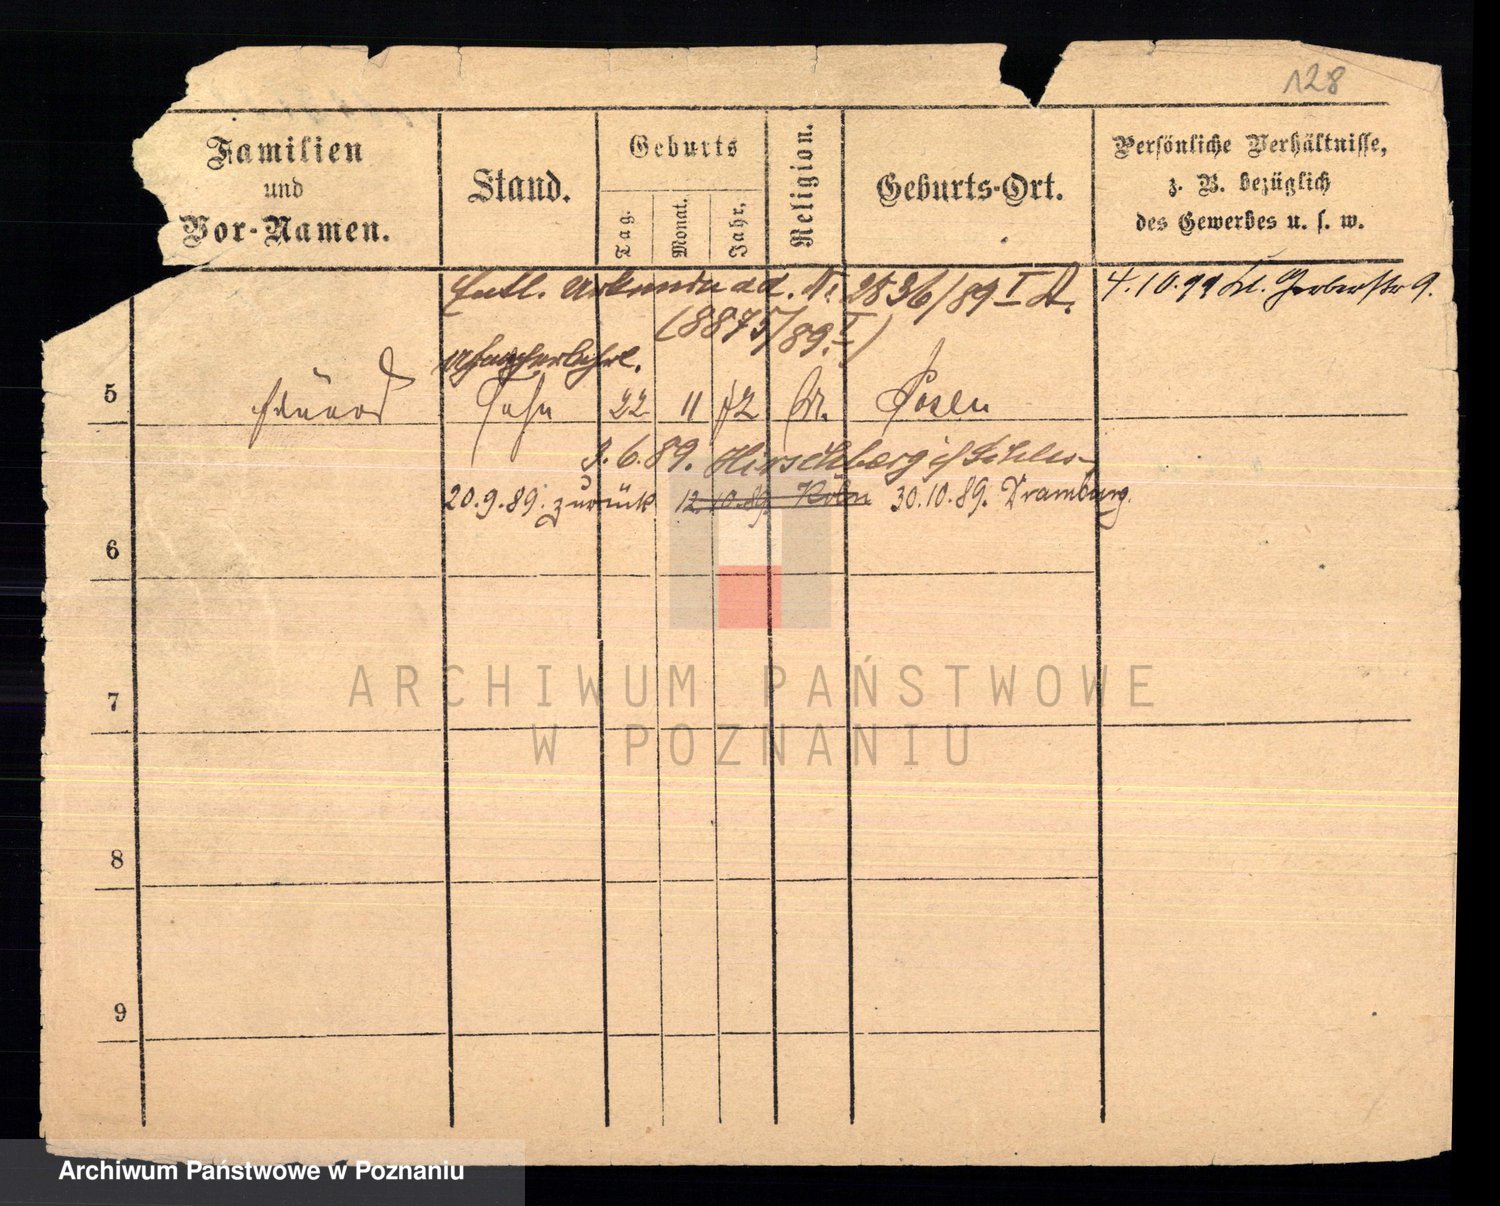 128
Familien
und
Vor-Namen.
Stand.
Geburts
Tag.
Monat.
Jahr.
Religion.
Geburts-Ort.
Persönliche Verhältnisse,
z. B. bezüglich
des Gewerbes u. s. w.
Entl. Urkunde ad. N: 2836/89 I A.
4.10.99 Kl. Gerberstr 9.
(8875/89. I)
5 Eduard Sohn 22 11 72 M. Posen
3.6.89. Hirschberg i/Schles
20.9.89. zurück 12.10.89. Köln 30.10.89. Dramburg.
6
7
ARCHIWUM PAŃSTWOWE
W POZNANIU
8
9
Archiwum Państwowe w Poznaniu